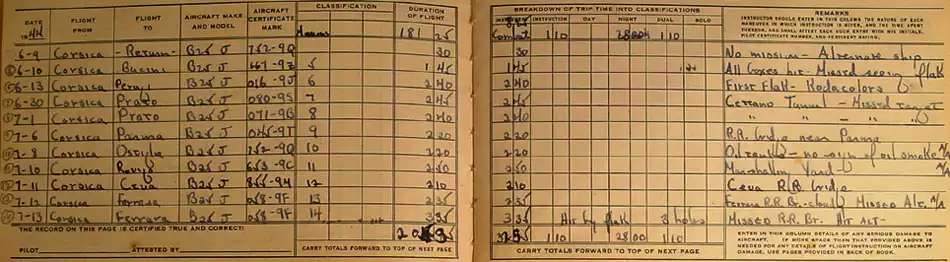 DATE
1944
FLIGHT FROM
FLIGHT TO
AIRCRAFT MAKE AND MODEL
AIRCRAFT CERTIFICATE MARK
CLASSIFICATION
DURATION OF FLIGHT
181 25
6-9 Corsica - Return - B25 J 752-9Q 30
6-10 Corsica B25 J 5 1 45
6-13 Corsica B25 J 016-9J 6 2 40
6-30 Corsica Prato B25 J 080-9S 7 2 45
7-1 Corsica Prato B25 J 071-9B 8 2 40
7-6 Corsica Parma B25 J 9 2 20
7-8 Corsica Ostiglia B25 J 752-9Q 10 2 20
7-10 Corsica B25 J 11 2 50
7-11 Corsica Ceva B25 J 12 2 10
7-12 Corsica Ferrara B25 J 13 2 35
7-13 Corsica Ferrara B25 J 14 3 35
THE RECORD ON THIS PAGE IS CERTIFIED TRUE AND CORRECT:
PILOT ATTESTED BY
CARRY TOTALS FORWARD TO TOP OF NEXT PAGE
BREAKDOWN OF TRIP TIME INTO CLASSIFICATIONS
INSTRUCTION DAY NIGHT DUAL SOLO
Combat 1 10 1 10
REMARKS
INSTRUCTOR SHOULD ENTER IN THIS COLUMN THE NATURE OF EACH MANEUVER IN WHICH INSTRUCTION IS GIVEN, AND THE TIME SPENT THEREON, AND SHALL ATTEST EACH SUCH ENTRY WITH HIS INITIALS, PILOT CERTIFICATE NUMBER, AND PERTINENT RATING.
30 No mission - Alternate ship
1 45 All boxes hit - Missed seeing flak
2 40 First Flak - Kodacolors
2 45 Tunnel - Missed target
2 40 " " - " "
2 20 R.R. Bridge near Parma
2 20 Oil tanks - no sign of oil smoke A/A
2 50 Marshalling Yard - A/A
2 10 Ceva R.R. Bridge
2 35 Ferrara R.R. Br. - cloudy Missed Alt. A/A
3 35 Hit by flak 3 holes Missed R.R. Br. Hit Alt -
1 10 28 00 1 10
CARRY TOTALS FORWARD TO TOP OF NEXT PAGE
ENTER IN THIS COLUMN DETAILS OF ANY SERIOUS DAMAGE TO AIRCRAFT. IF MORE SPACE THAN THAT PROVIDED ABOVE IS NEEDED FOR ANY DETAILS OF FLIGHT INSTRUCTION OR AIRCRAFT DAMAGE, USE PAGES PROVIDED IN BACK OF BOOK.